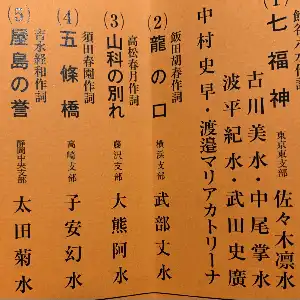 (1) 七福神
東京東支部
佐々木凛水
古川美水・中尾掌水
波平紀水・武田史廣
中村史早・渡邉マリアカトリーナ
飯田胡春作詞
(2) 龍の口
横浜支部
武部丈水
高松春月作詞
(3) 山科の別れ
藤沢支部
大熊阿水
須田春園作詞
(4) 五條橋
高崎支部
子安幻水
吉水経和作詞
(5) 屋島の誉
静岡中央支部
太田菊水